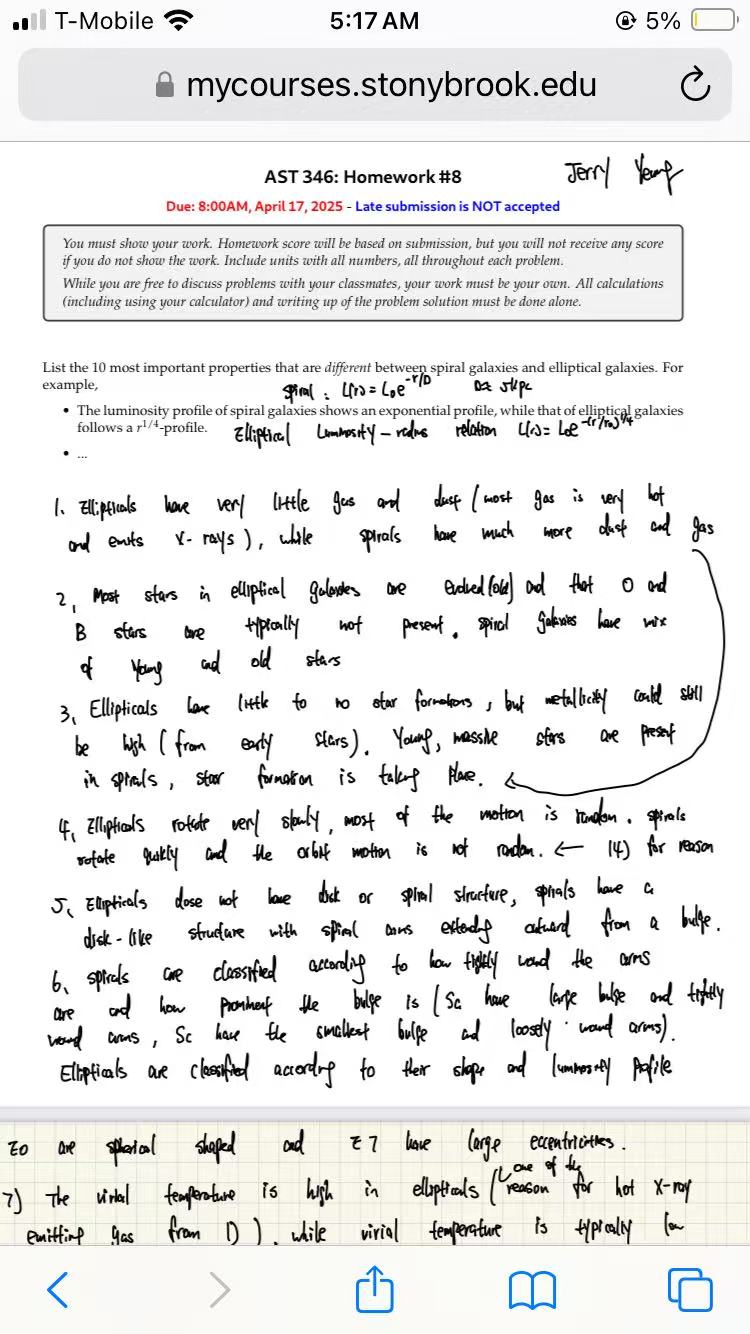 T-Mobile 5:17 AM 5%
mycourses.stonybrook.edu
AST 346: Homework #8 Jerry
Due: 8:00AM, April 17, 2025 - Late submission is NOT accepted
You must show your work. Homework score will be based on submission, but you will not receive any score
if you do not show the work. Include units with all numbers, all throughout each problem.
While you are free to discuss problems with your classmates, your work must be your own. All calculations
(including using your calculator) and writing up of the problem solution must be done alone.
List the 10 most important properties that are different between spiral galaxies and elliptical galaxies. For
example,
Spiral : L(r) = L₀e^-r/D
• The luminosity profile of spiral galaxies shows an exponential profile, while that of elliptical galaxies
follows a r^1/4-profile. Elliptical Luminosity - radius relation L(r) = L₀e^-(r/r₀)^1/4
• ...
1. Ellipticals have very little gas and dust (most gas is very hot
and emits X-rays), while spirals have much more dust and gas
2, Most stars in elliptical galaxies are evolved (old) and that O and
B stars are typically not present. Spiral galaxies have mix
of Young and old stars
3, Ellipticals have little to no star formations, but metallicity could still
be high (from early stars). Young, massive stars are present
in spirals, star formation is taking place.
4, Ellipticals rotate very slowly, most of the motion is random. spirals
rotate quikly and the orbit motion is not random. ← 14) for reason
5, Ellipticals dose not have disk or spiral structure, spirals have a
disk-like structure with spiral arms extending outward from a bulge.
6, spirals are classified according to how tightly wond the arms
are and how prominent the bulge is (Sa have large bulge and tightly
wond arms, Sc have the smallest bulge and loosely wond arms).
Ellipticals are classified according to their shape and luminosity Profile
E0 are spherical shaped and E7 have large eccentricities.
one of the
7) The virial temperature is high in ellipticals (reason for hot X-ray
emitting gas from 1)). while virial temperature is typically low